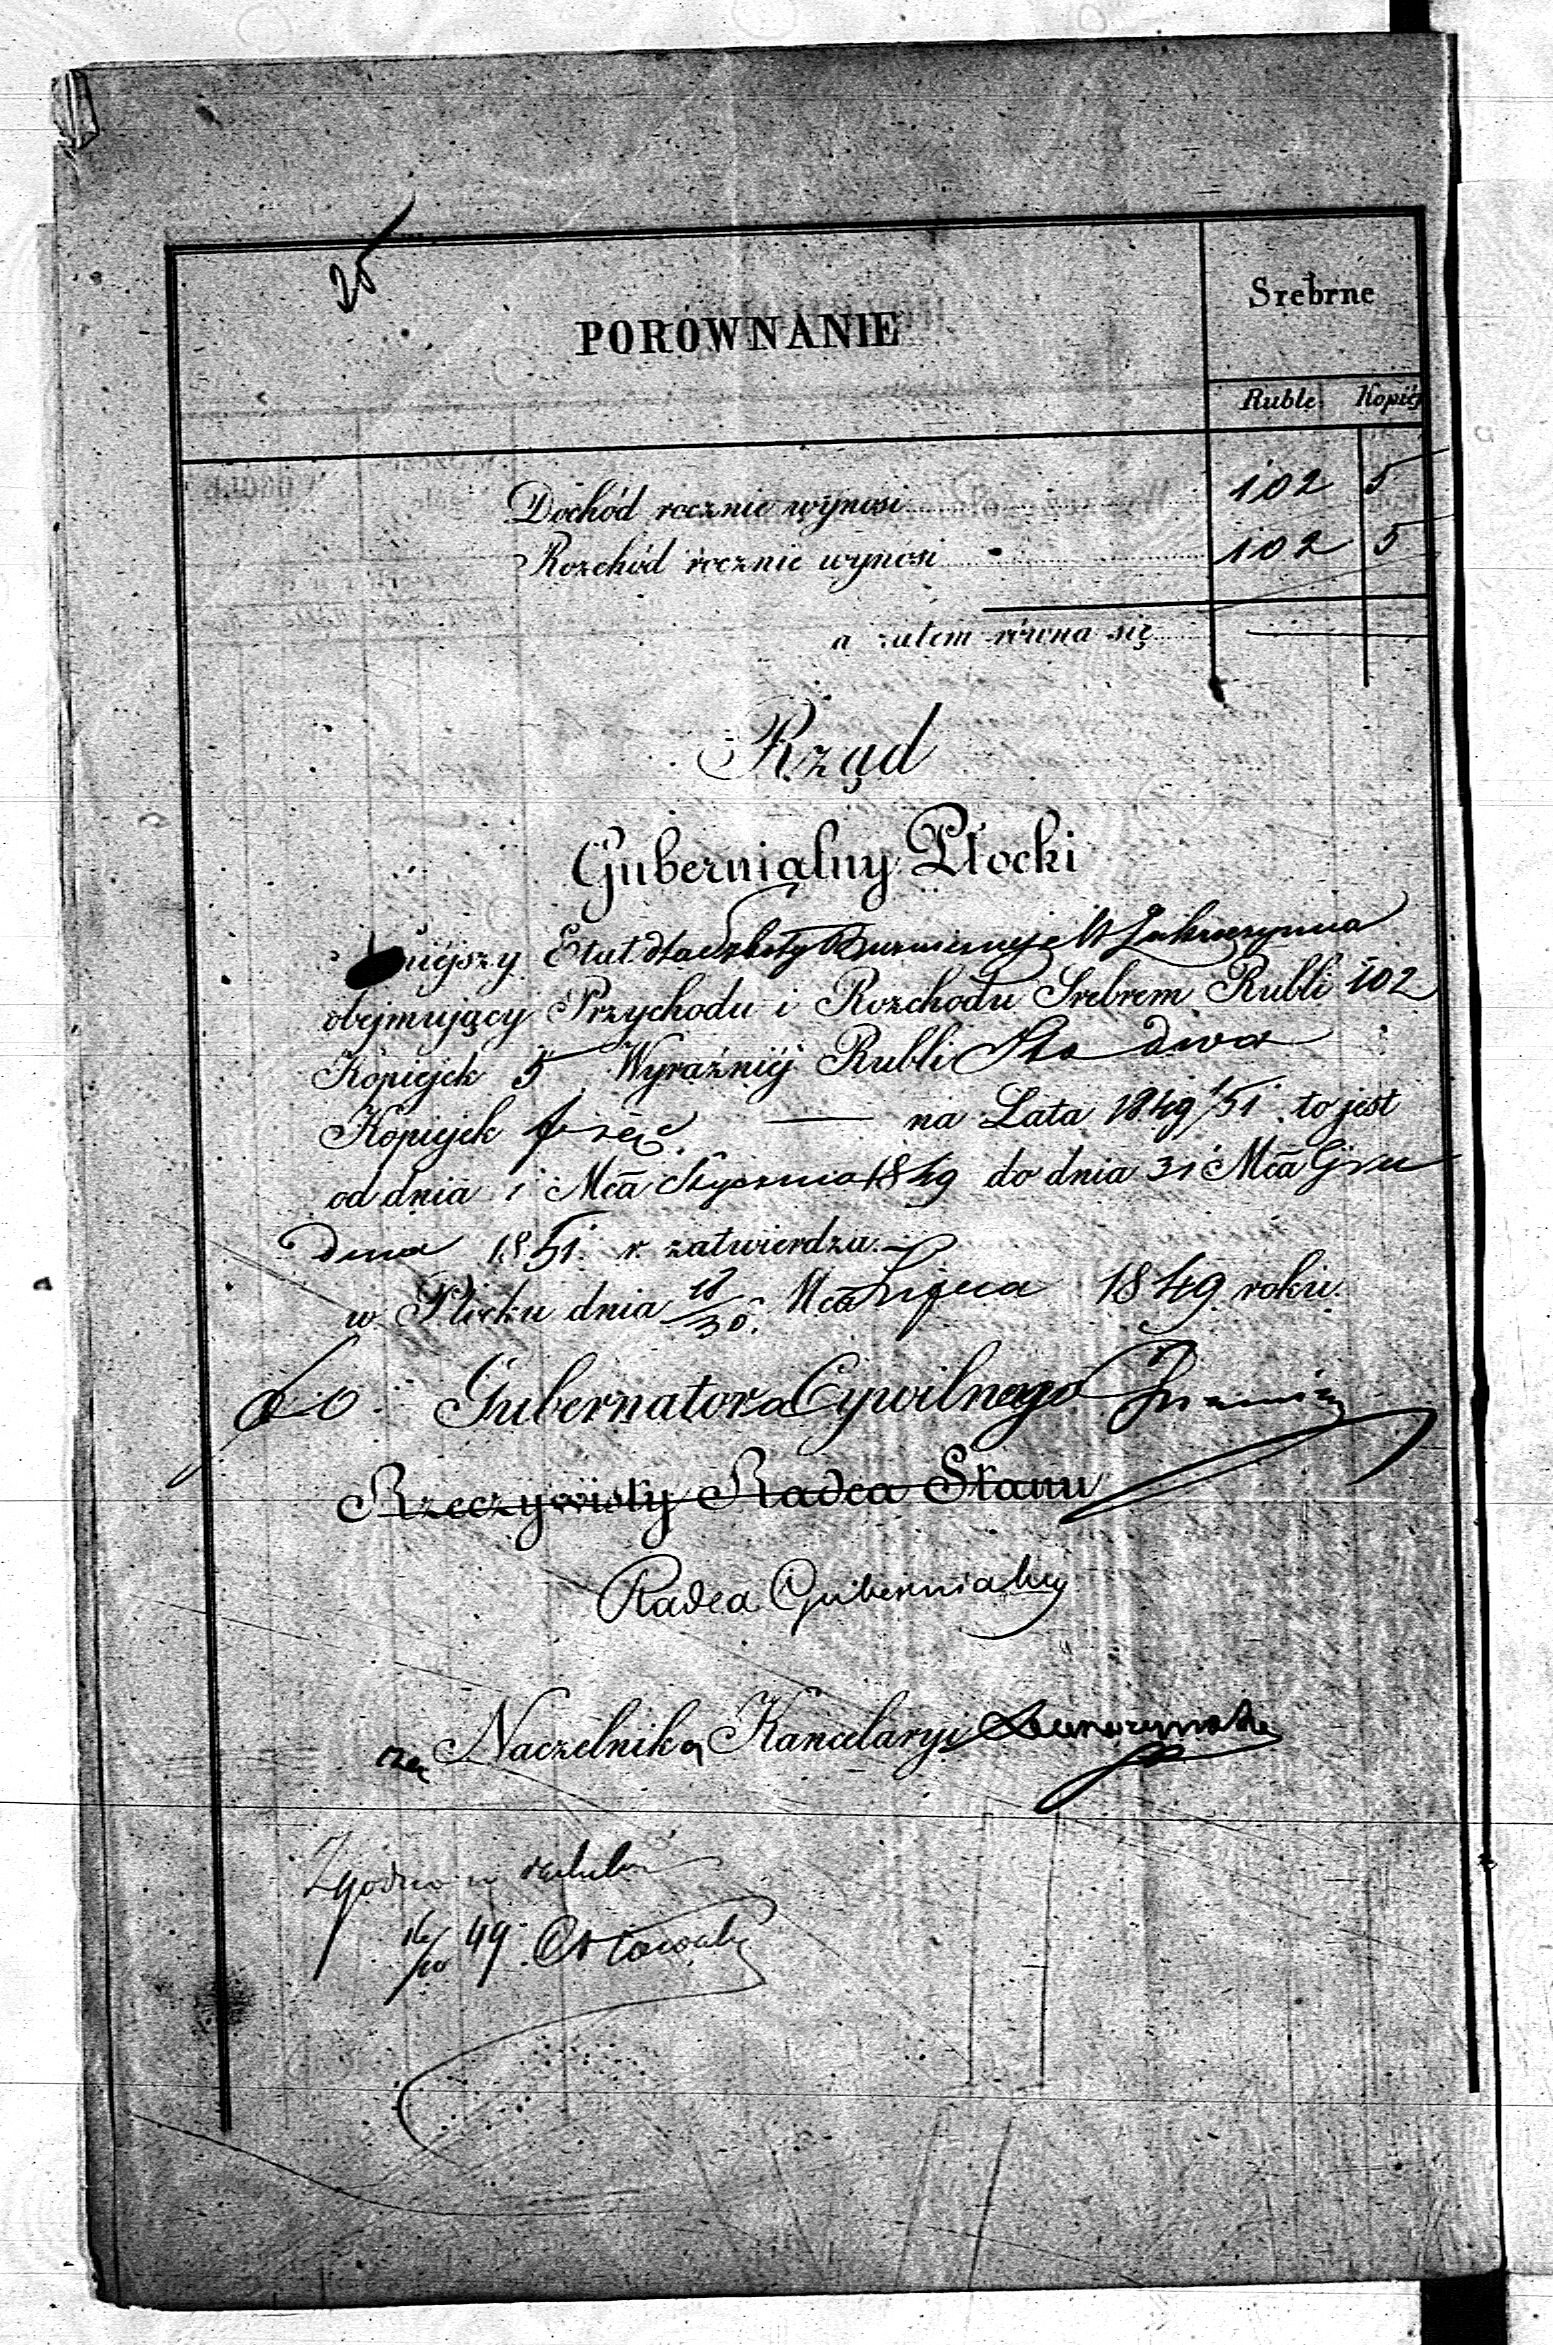 25
PORÓWNANIE
Srebrne
Ruble Kopiéj
Dochód rocznie wynosi 102 5
Rozchód rocznie wynosi 102 5
a zatem równa się
Rząd
Gubernialny Płocki
Etat dla Szkoły M Zakroczymia
obejmujący Przychodu i Rozchodu Srebrem Rubli 102
Kopiejek 5 Wyraźniéj Rubli Sto dwa
Kopiejek pięć na Lata 1849/51 to jest
od dnia 1 Mca Stycznia 1849 do dnia 31 Mca Gru
dnia 1851 r. zatwierdza.
w Płocku dnia 18/30 Mca Lipca 1849 roku.
Gubernatora Cywilnego
Rzeczywisty Radca Stanu
Radca Gubernialny
za Naczelnika Kancelaryi
Zgodno
49